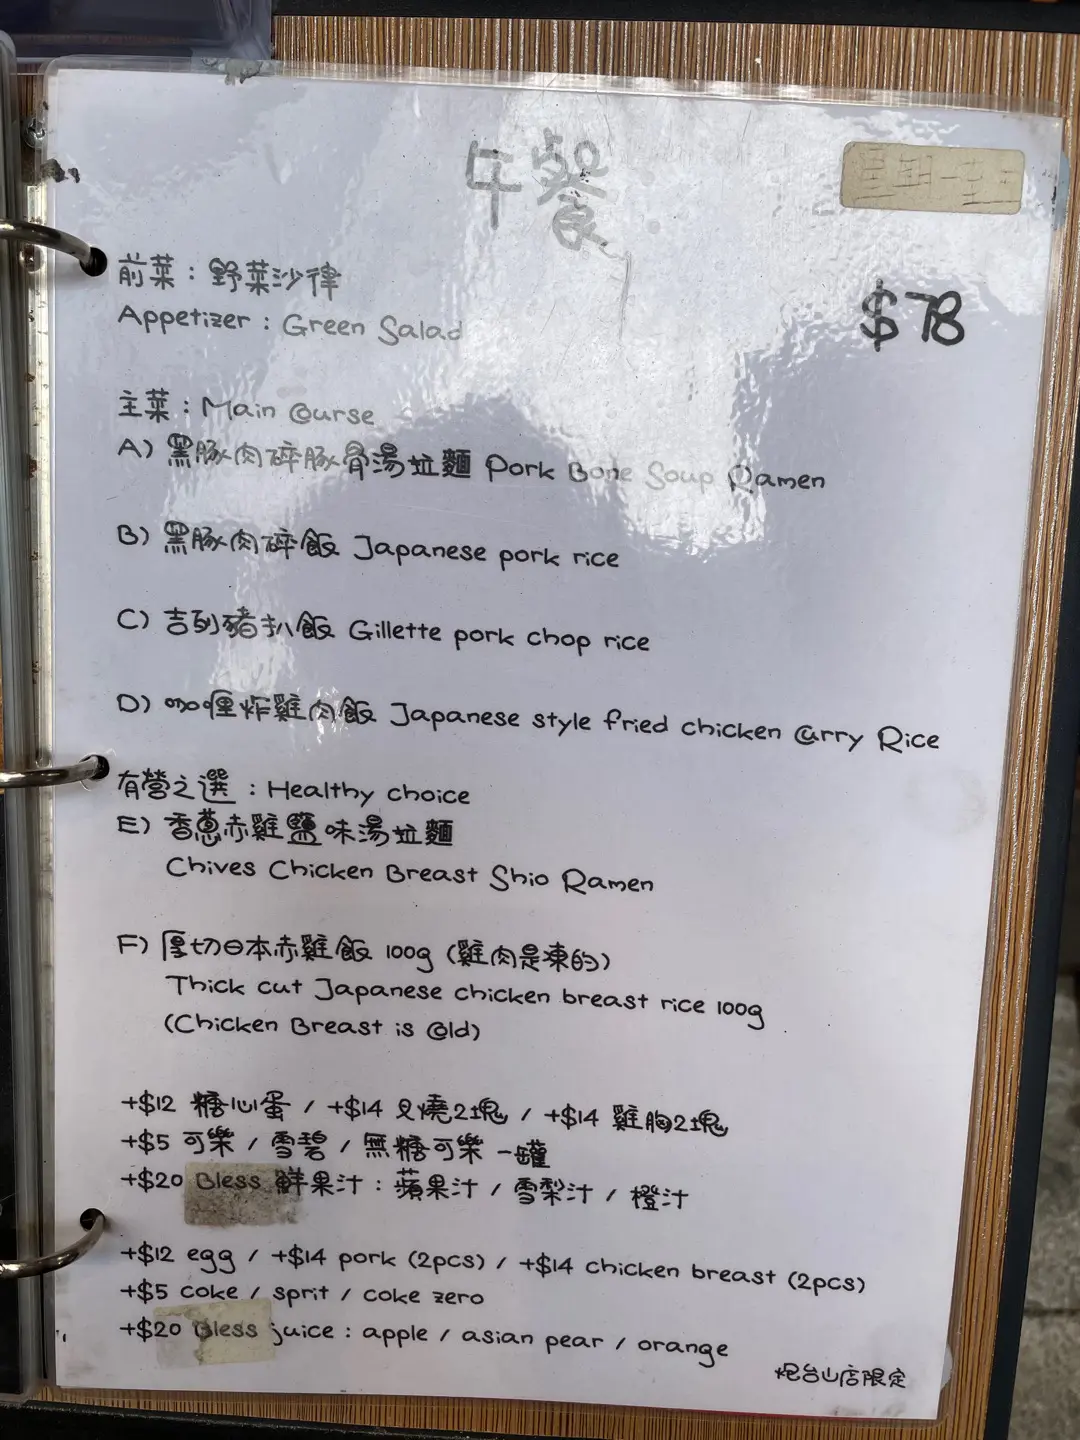 午餐
$78
前菜：野菜沙律
Appetizer : Green Salad
主菜：Main Course
A) 黑豚肉碎豚骨湯拉麵 Pork Bone Soup Ramen
B) 黑豚肉碎飯 Japanese pork rice
C) 吉列豬扒飯 Gillette pork chop rice
D) 咖喱炸雞肉飯 Japanese style fried chicken Curry Rice
有營之選：Healthy choice
E) 香蔥赤雞鹽味湯拉麵
Chives Chicken Breast Shio Ramen
F) 厚切日本赤雞飯 100g (雞肉是凍的)
Thick cut Japanese chicken breast rice 100g
(Chicken Breast is Cold)
+$12 糖心蛋 / +$14 叉燒2塊 / +$14 雞胸2塊
+$5 可樂 / 雪碧 / 無糖可樂 一罐
+$20 Bless 鮮果汁：蘋果汁 / 雪梨汁 / 橙汁
+$12 egg / +$14 pork (2pcs) / +$14 chicken breast (2pcs)
+$5 coke / sprit / coke zero
+$20 Bless juice : apple / asian pear / orange
炮台山店限定